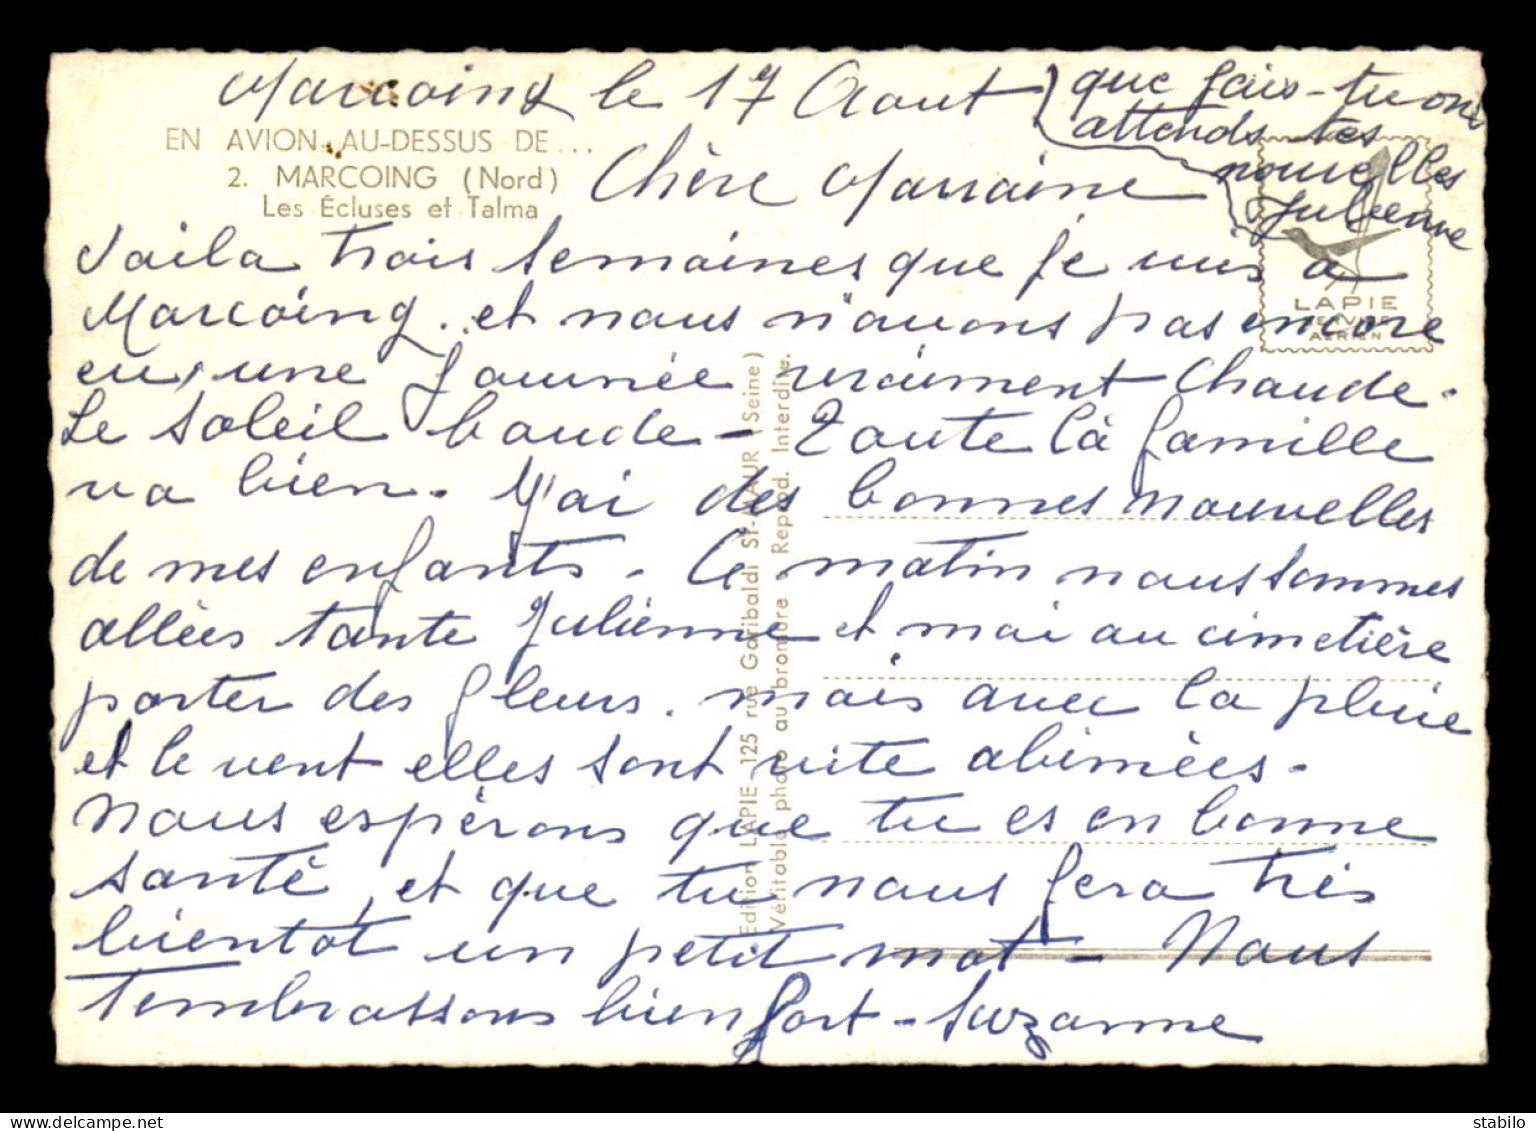 Marcoing le 17 Aout
que fais-tu on
attends tes
nouvelles
Julienne
EN AVION AU-DESSUS DE...
2. MARCOING (Nord)
Les Écluses et Talma
Chère Marraine
LAPIE
SERVICE
AÉRIEN
Voila trois semaines que je suis à
Marcoing. et nous n'avons pas encore
eu, une journée vraiment chaude.
Le soleil boude - Toute la famille
va bien. J'ai des bonnes nouvelles
de mes enfants. Ce matin nous sommes
allées tante Julienne et moi au cimetière
porter des fleurs. mais avec la pluie
et le vent elles sont vite abimées.
Nous espérons que tu es en bonne
santé, et que tu nous fera très
bientot un petit mot - Nous
t'embrassons bien fort - Suzanne
Edition LAPIE - 125 rue Garibaldi St-MAUR (Seine)
Véritable photo au bromure - Reprod. Interdite.
stabilo